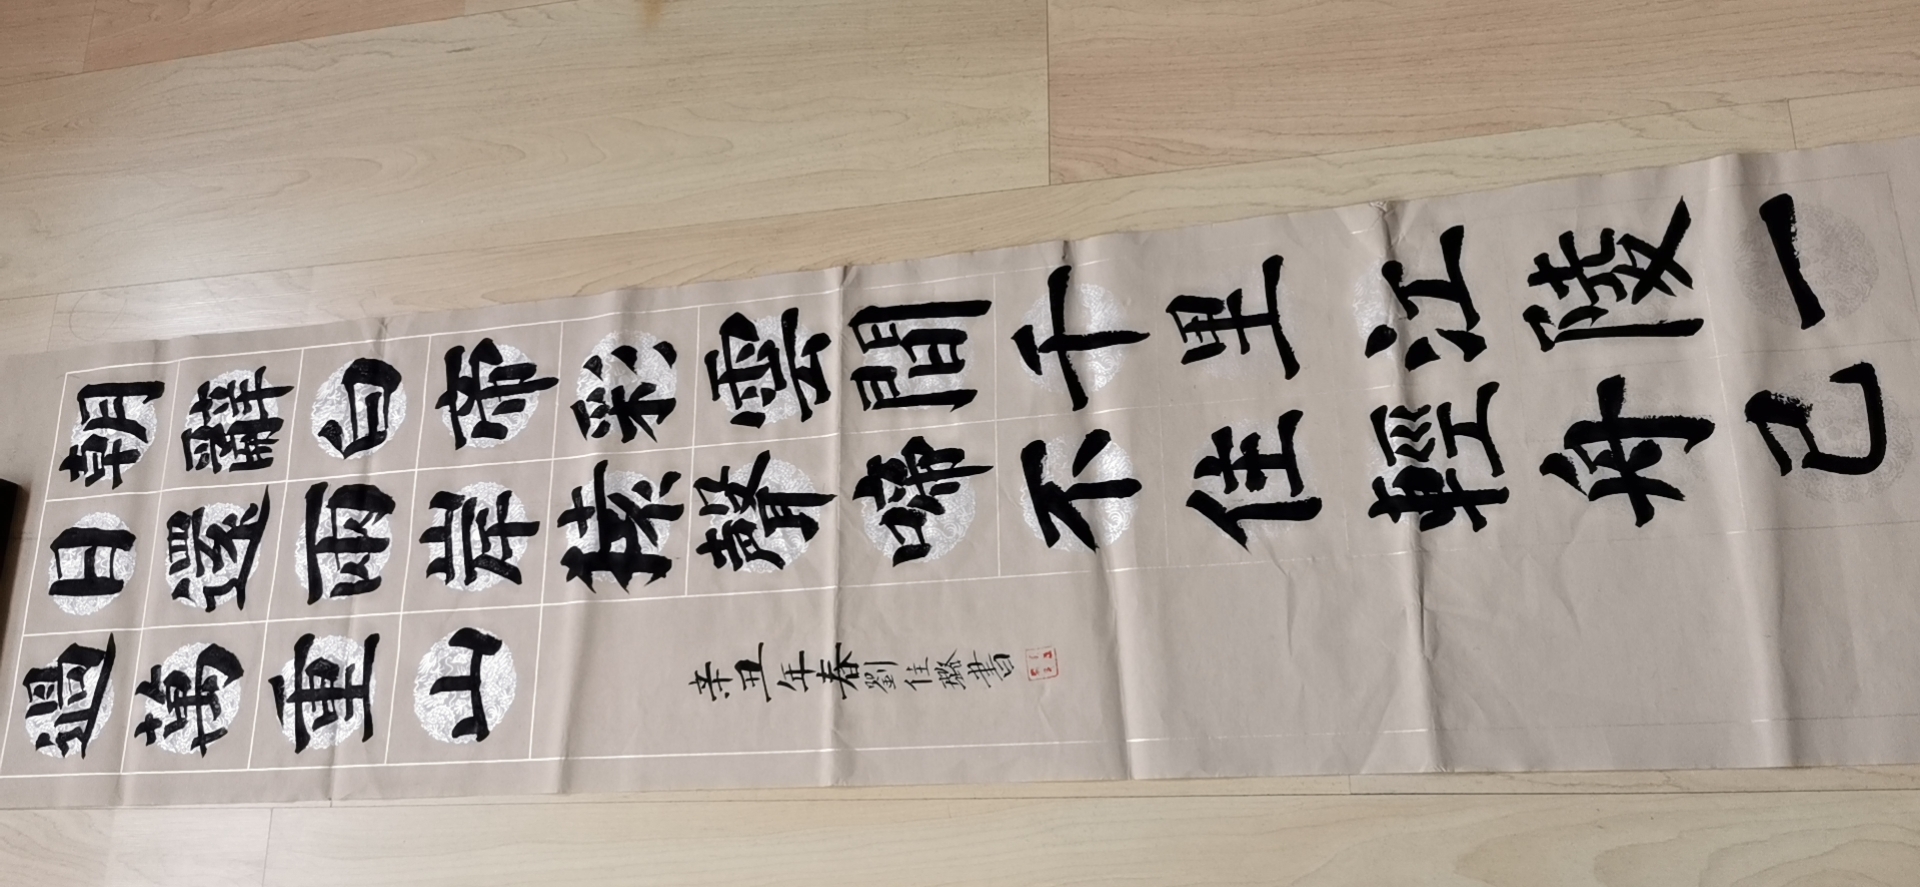 朝辭白帝彩雲間千里江陵一
日還兩岸猿聲啼不住輕舟已
過萬重山
辛丑年春劉書